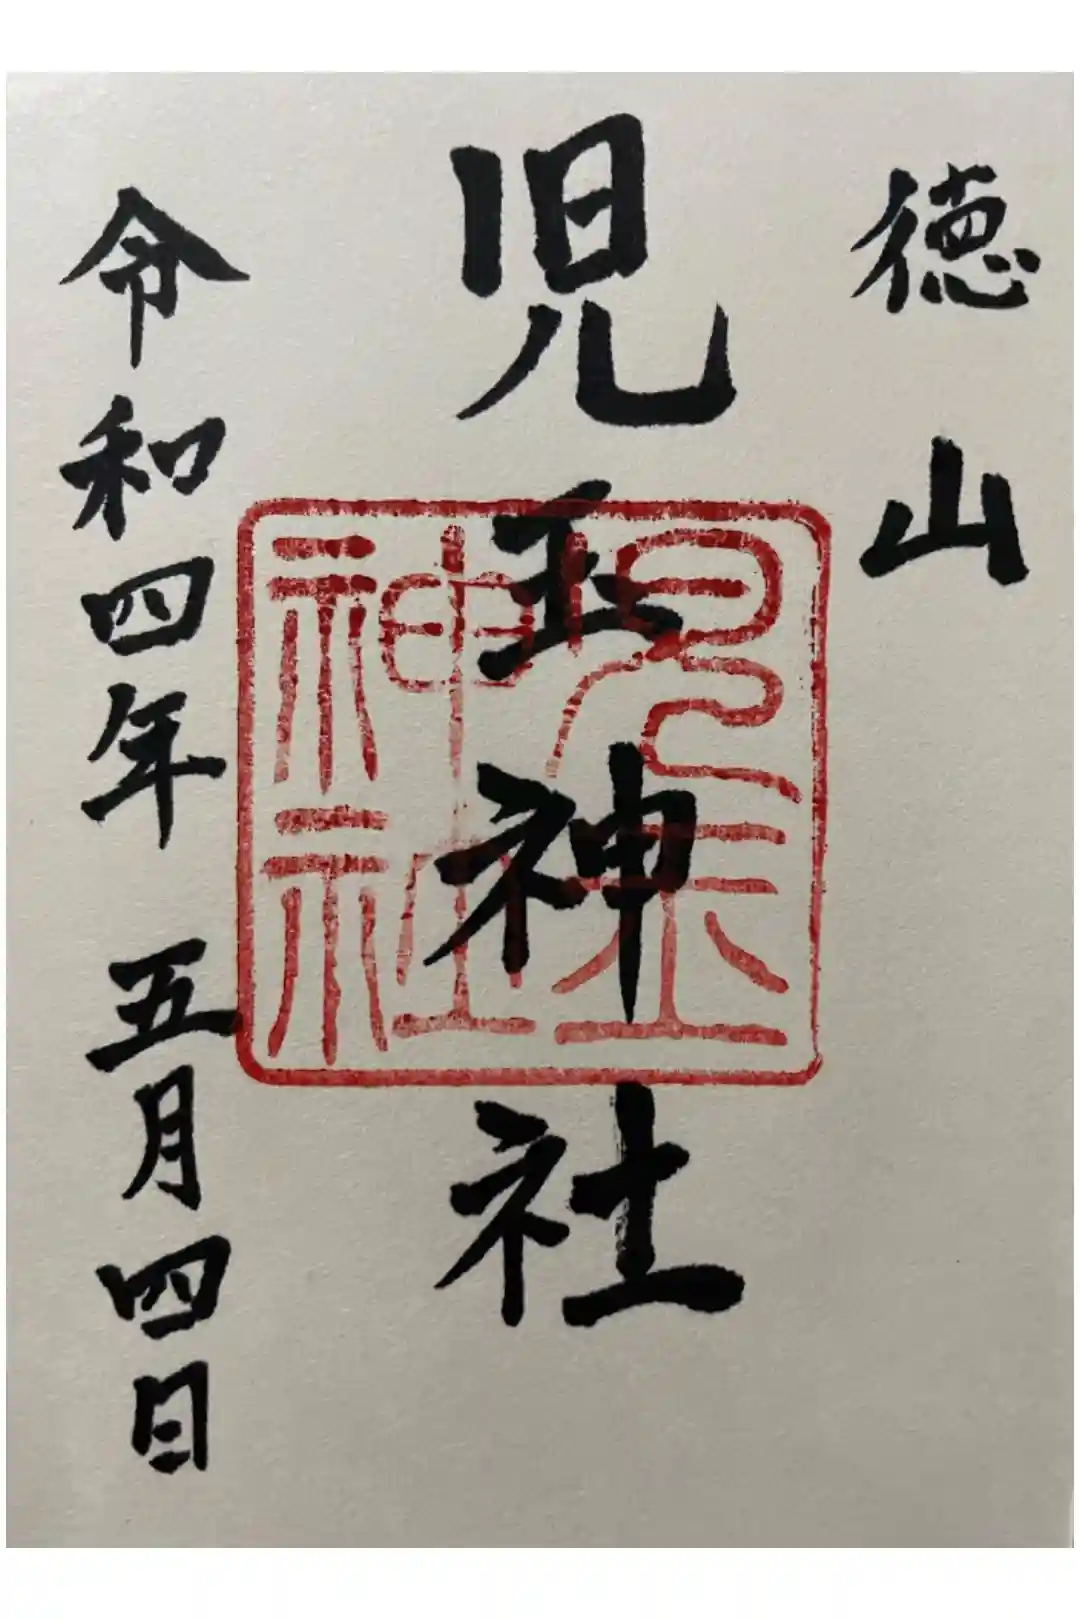 徳山
児玉神社
児玉神社
令和四年 五月四日